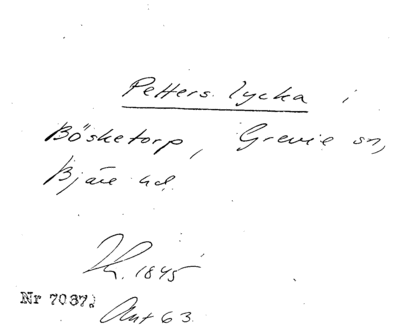 Petters lycka i
Bösketorp, Grevie sn,
Bjäre hd.
Kr. 1845
Nr 7037.
Ant 63.